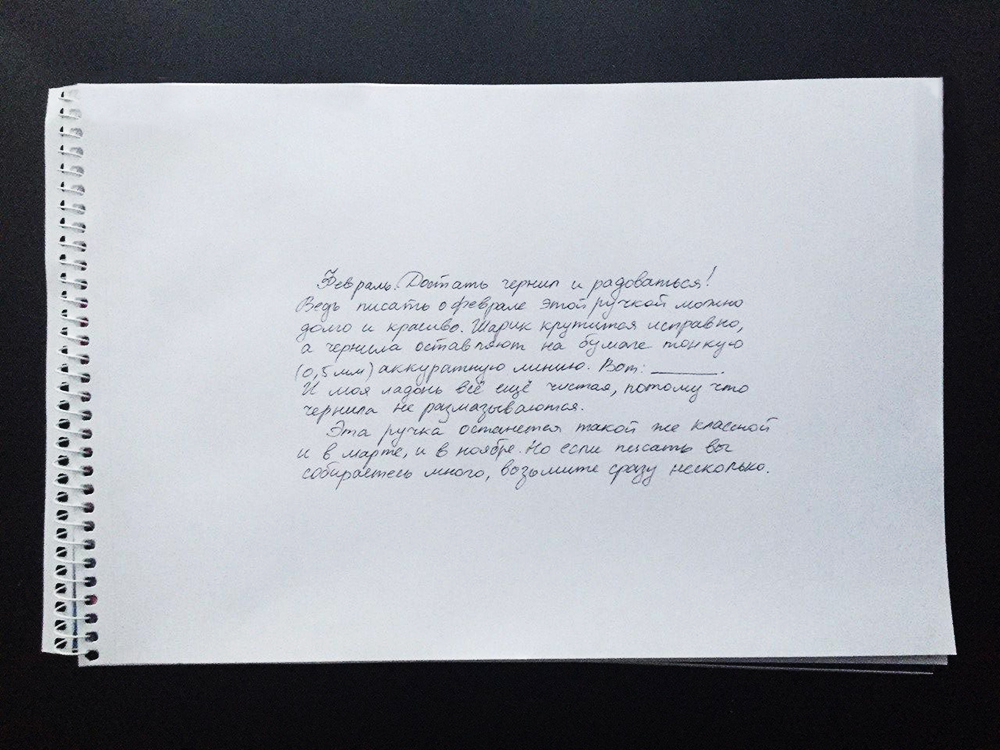 Февраль. Достать чернил и радоваться!
Ведь писать о феврале этой ручкой можно
долго и красиво. Шарик крутится исправно,
а чернила оставляют на бумаге тонкую
(0,5 мм) аккуратную линию. Вот: ______.
И моя ладонь всё ещё чистая, потому что
чернила не размазываются.
Эта ручка останется такой же классной
и в марте, и в ноябре. Но если писать вы
собираетесь много, возьмите сразу несколько.